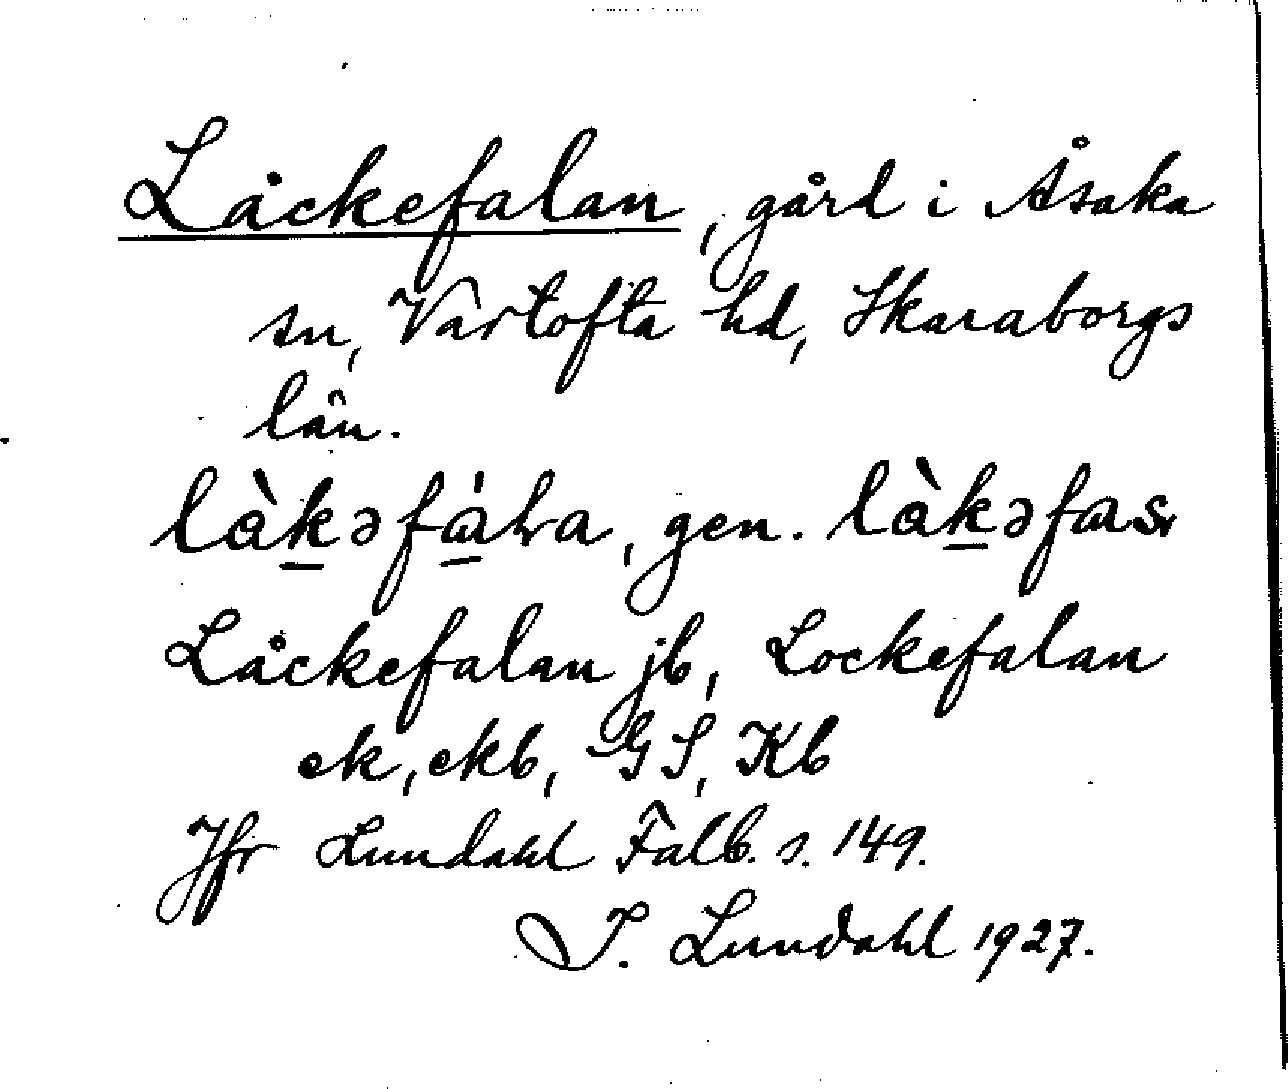 Låckefalan, gård i Åsaka
sn, Vartofta hd, Skaraborgs
län.
làkəfála, gen. làkəfas
Låckefalan jb, Lockefalan
ek, ekb, GS, Kb
Jfr Lundahl Falb. s. 149.
I. Lundahl 1927.